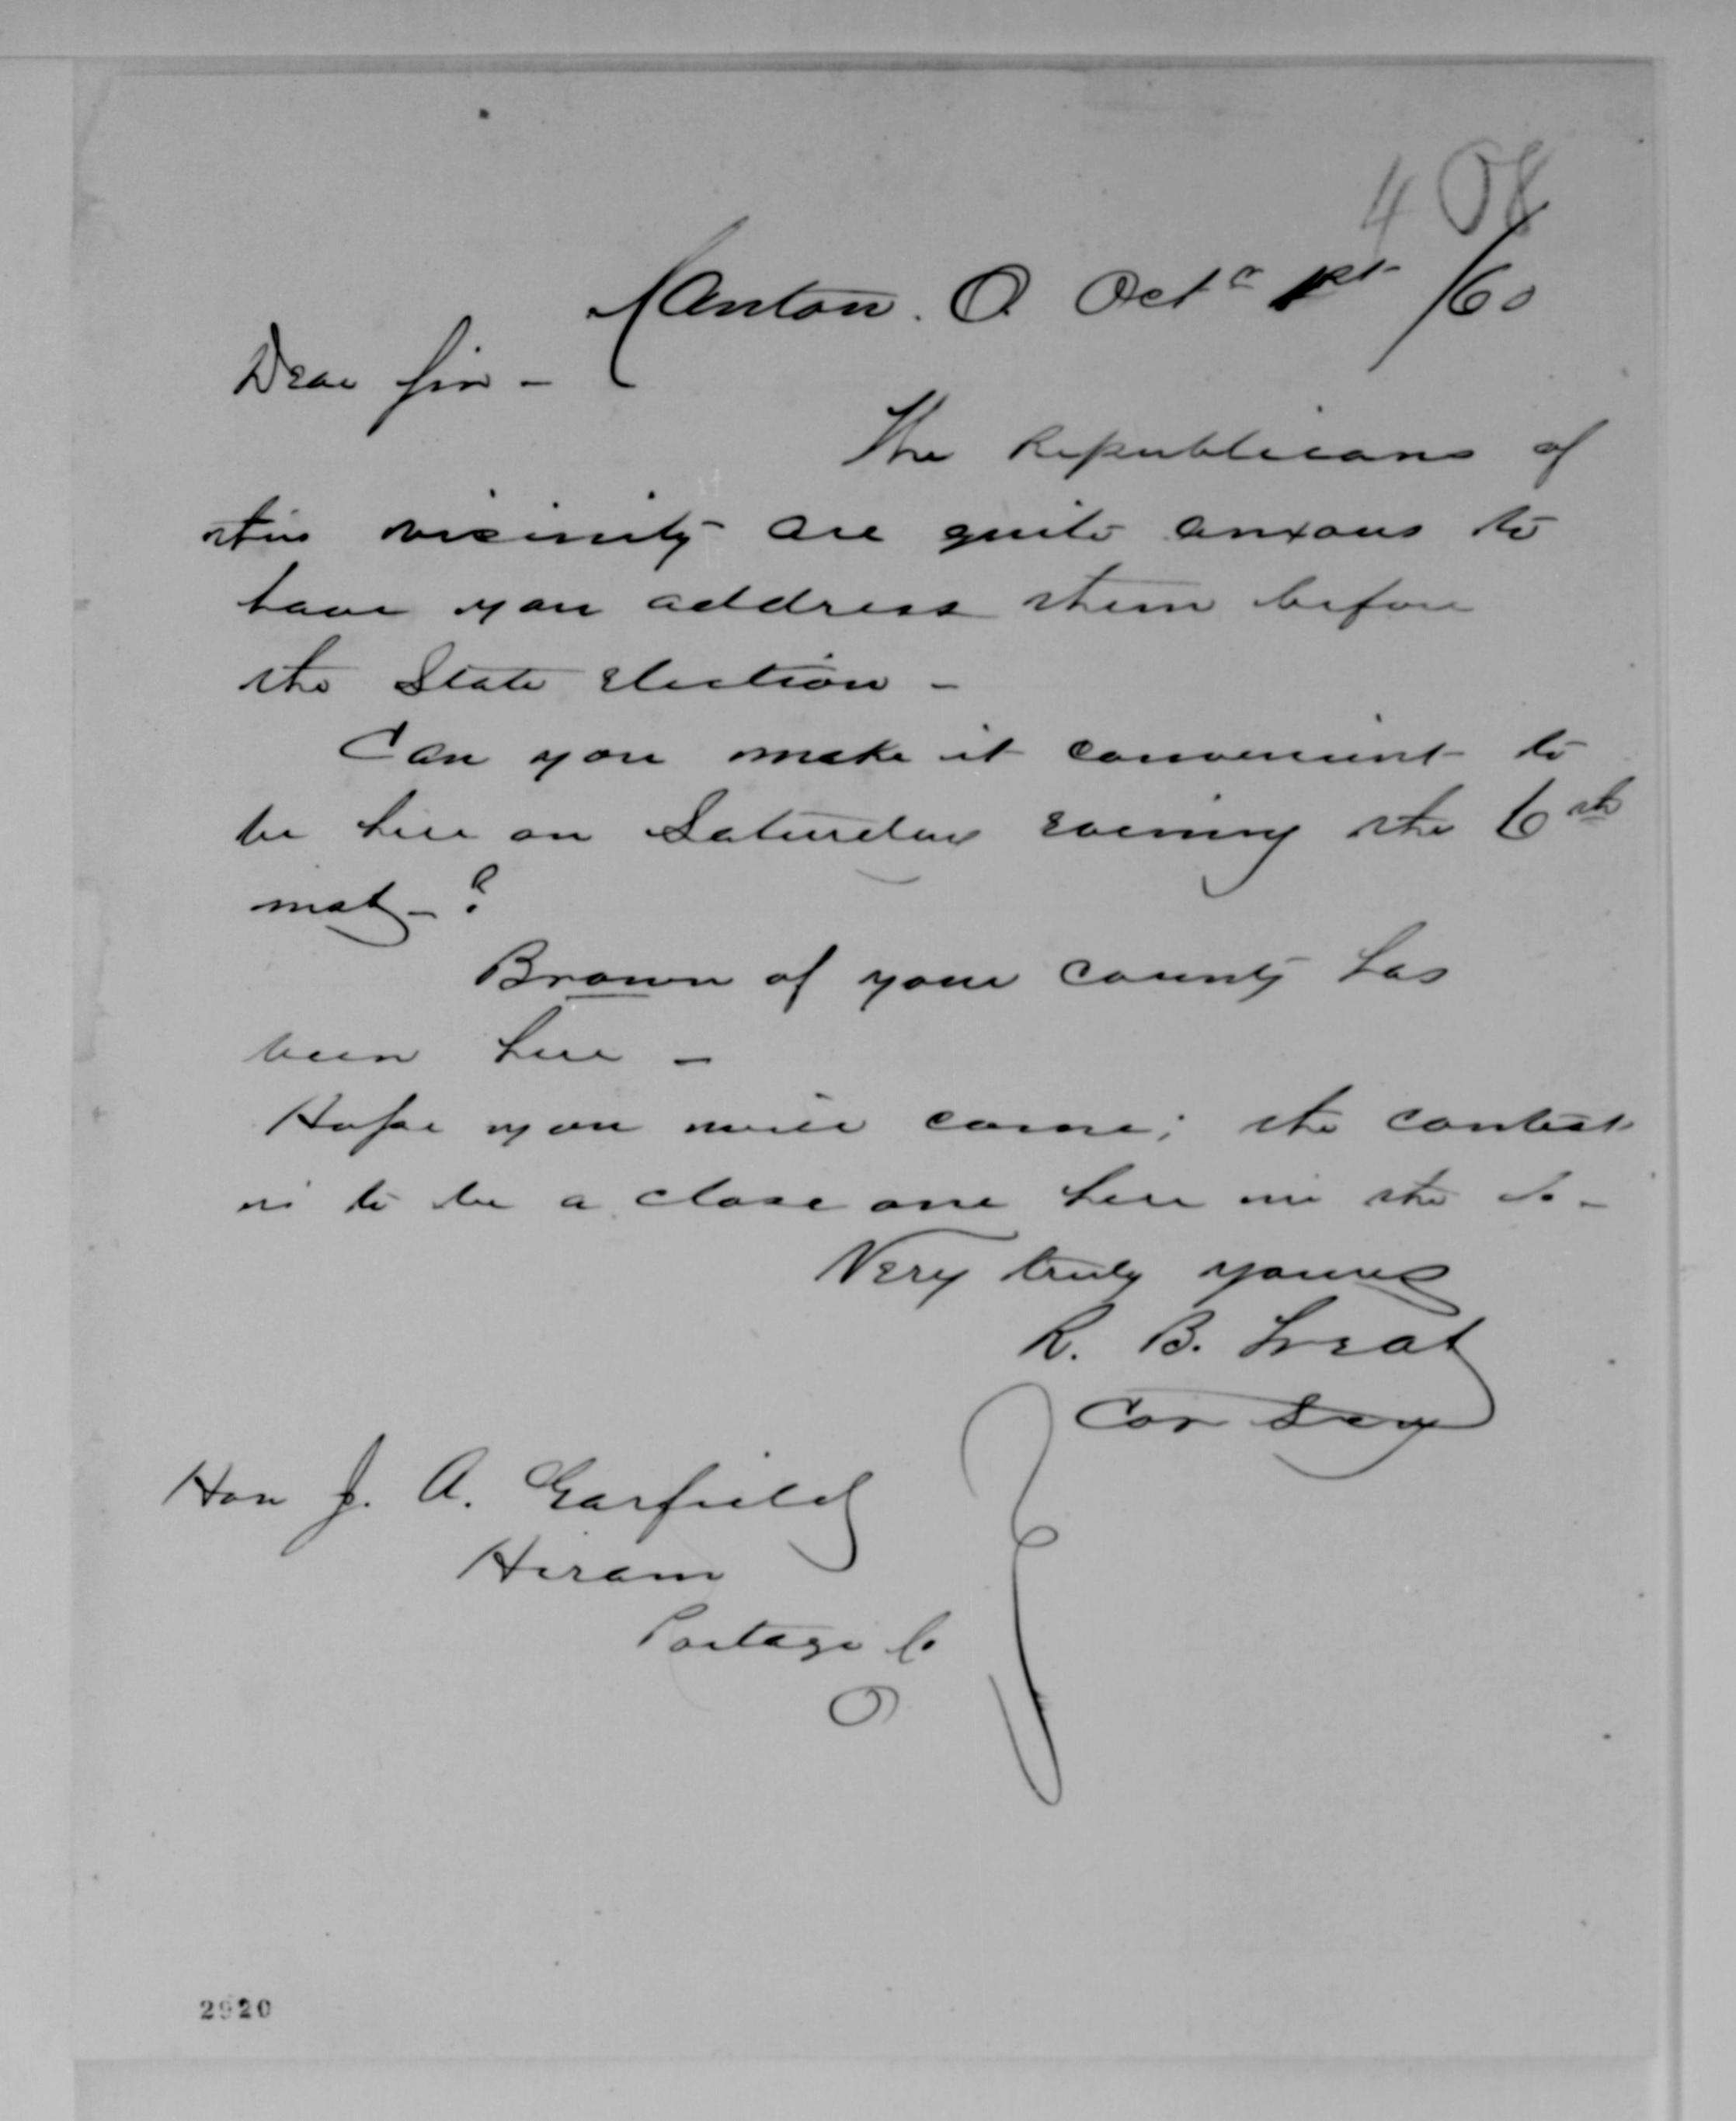 408
Canton. O. Octr 1st /60
Dear Sir -
The Republicans of
this vicinity are quite anxous to
have you address them before
the State Election -
Can you make it convenient to
be here on Saturday evening the 6th
inst - ?
Brown of your county has
been here -
Hope you will come; the contest
is to be a close one here in the Co -
Very truly yours
R. B. Treat
Cor Secy
Hon J. A. Garfield
Hiram
Portage Co
O
2920